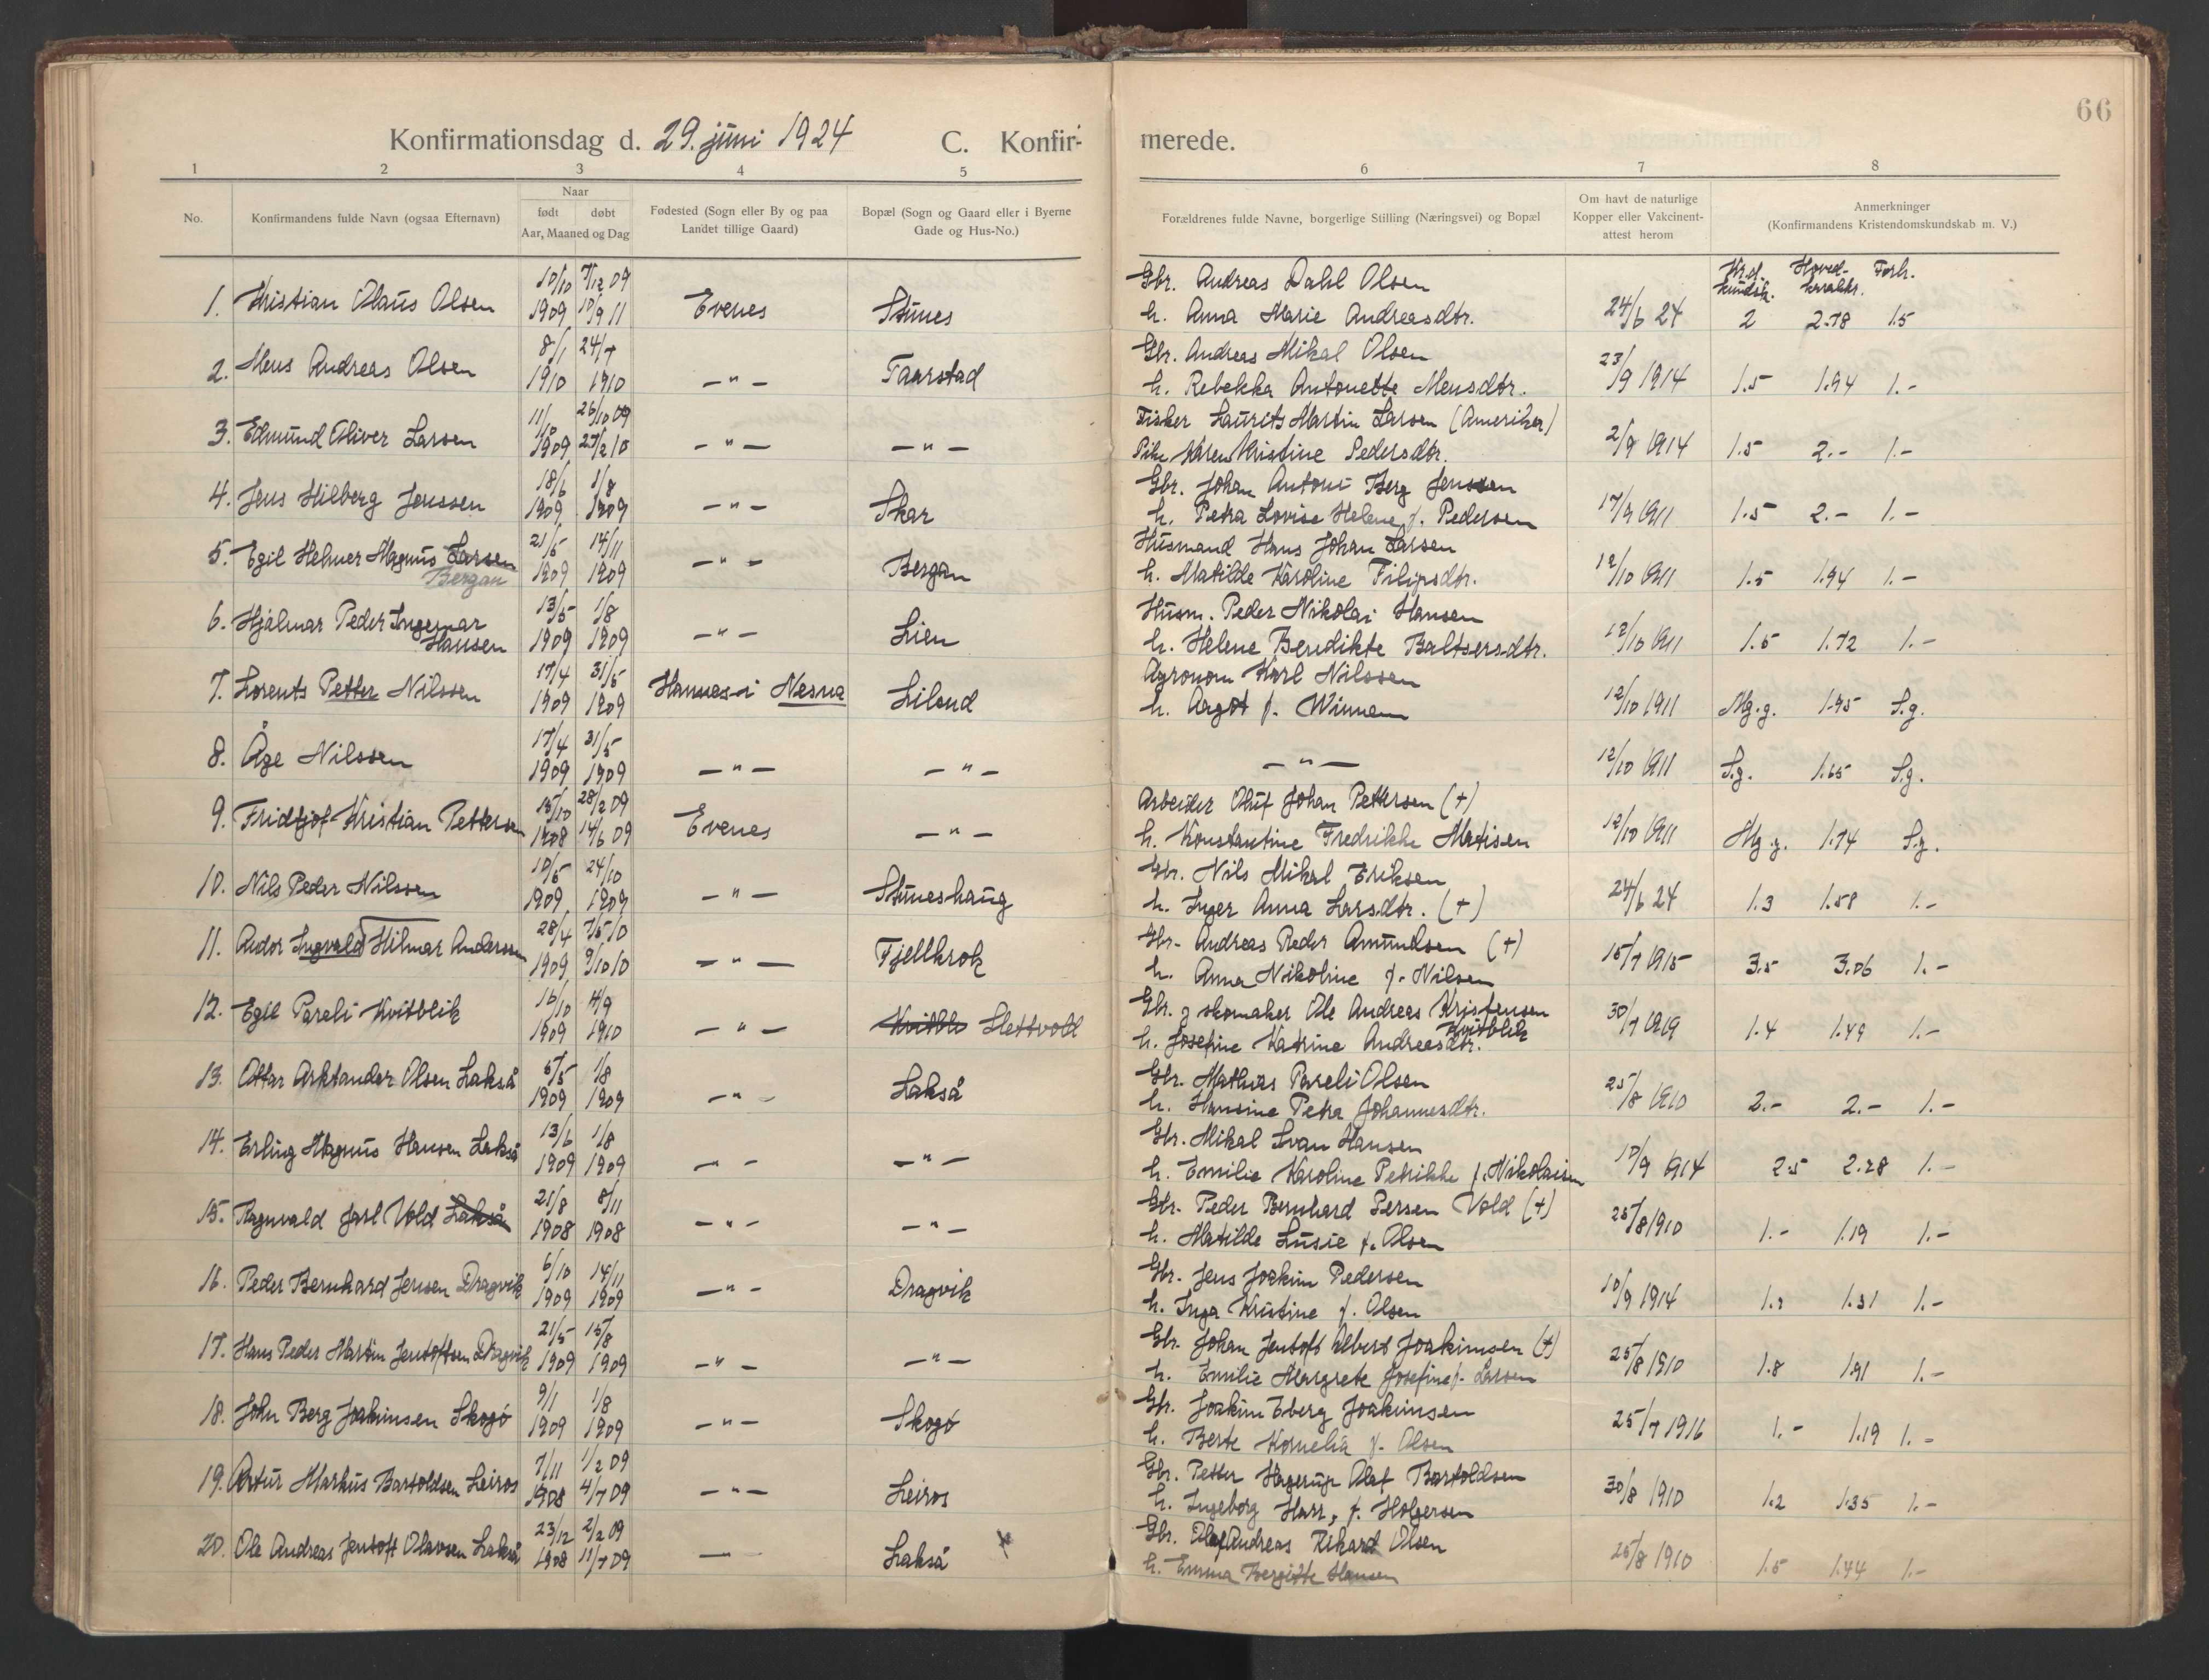 66
Konfirmationsdag d. 29. juni 1924 C. Konfir-
merede.
1 2 3 4 5 6 7 8
No. Konfirmandens fulde Navn (ogsaa Efternavn)
Naar
født døbt
Aar, Maaned og Dag
Fødested (Sogn eller By og paa
Landet tillige Gaard)
Bopæl (Sogn og Gaard eller i Byerne
Gade og Hus-No.)
Forældrenes fulde Navne, borgerlige Stilling (Næringsvei) og Bopæl
Om havt de naturlige
Kopper eller Vakcinent-
attest herom
Anmerkninger
(Konfirmandens Kristendomskundskab m. V.)
Kr.d. kundsk. Hoved-karakt. Forh.
10/10 7/12 09 Gbr. Andreas Dahl Olsen
1. Kristian Olaus Olsen 1909 10/9 11 Evenes Stunes h. Anna Marie Andreasdtr. 24/6 24 2 2.78 1.5
8/1 24/7 Gbr. Andreas Mikal Olsen
2. Mens Andreas Olsen 1910 1910 —"— Taarstad h. Rebekka Antonette Mensdtr. 23/9 1914 1.5 1.94 1.-
11/10 26/10 09 Fisker Laurits Martin Larsen (Amerika)
3. Edmund Oliver Larsen 1909 27/2 10 —"— —"— Pike Maren Kristine Pedersdtr. 2/9 1914 1.5 2.- 1.-
18/6 1/8 Gbr. Johan Antoni Berg Jenssen
4. Jens Hilberg Jenssen 1909 1909 —"— Skar h. Petra Lovise Helene f. Pedersen 17/9 1911 1.5 2.- 1.-
21/5 14/11 Husmand Hans Johan Larsen
5. Egil Helmer Magnus Larsen 1909 1909 —"— Bergan h. Matilde Karoline Filipsdtr. 12/10 1911 1.5 1.94 1.-
Bergan
13/5 1/8 Husm. Peder Nikolai Hansen
6. Hjalmar Peder Ingemar
Hansen 1909 1909 —"— Lien h. Helene Bendikte Baltsersdtr. 12/10 1911 1.5 1.72 1.-
17/4 31/5 Agronom Karl Nilssen
7. Lorents Petter Nilssen 1909 1909 Hannes i Nesna Liland h. Argot f. Winnem 12/10 1911 Mg.g. 1.95 S.g.
17/4 31/5
8. Åge Nilssen 1909 1909 —"— —"— —"— 12/10 1911 S.g. 1.65 S.g.
15/10 28/2 09 Arbeider Oluf Johan Pettersen (+)
9. Fridtjof Kristian Pettersen 1908 14/6 09 Evenes —"— h. Konstantine Fredrikke Matisen 12/10 1911 Mg.g. 1.74 S.g.
10/5 24/10 Gbr. Nils Mikal Eriksen
10. Nils Peder Nilssen 1909 1909 —"— Stuneshaug h. Inger Anna Larsdtr. (+) 24/6 24 1.3 1.58 1.-
28/4 7/5 10 Gbr. Andreas Peder Amundsen (+)
11. Ardor Ingvald Hilmar Anderssen 1909 9/10 10 —"— Fjellkrok h. Anna Nikoline f. Nilsen 15/7 1915 3.5 3.06 1.-
16/10 4/9 Gbr. g skomaker Ole Andreas Kristensen
Kvitblik
12. Egil Pareli Kvitblik 1909 1910 —"— Kvitbli Slettvold h. Josefine Katrine Andreasdtr. 30/7 1919 1.4 1.49 1.-
6/5 1/8 Gbr. Mathias Pareli Olsen
13. Ottar Arktander Olsen Lakså 1909 1909 —"— Lakså h. Hansine Petra Johannesdtr. 25/8 1910 2.- 2.- 1.-
13/6 1/8 Gbr. Mikal Ivan Hansen
14. Erling Magnus Hansen Lakså 1909 1909 —"— —"— h. Emilie Karoline Petrikke f. Nikolaisen 10/9 1914 2.5 2.28 1.-
21/8 8/11 Gbr. Peder Bernhard Persen Vold (+)
15. Ragnvald Jarl Vold Lakså 1908 1908 —"— —"— h. Matilde Lusie f. Olsen 25/8 1910 1.- 1.19 1.-
6/10 14/11 Gbr. Jens Joakim Pedersen
16. Peder Bernhard Jensen Dragvik 1909 1909 —"— Dragvik h. Inga Kristine f. Olsen 10/9 1914 1.2 1.31 1.-
21/5 15/8 Gbr. Johan Jentoft Albert Joakimsen (+)
17. Hans Peder Martin Jentoftsen Dragvik 1909 1909 —"— —"— h. Emilie Margrete Josefine f. Larsen 25/8 1910 1.8 1.91 1.-
9/1 1/8 Gbr. Joakim Eberg Joakimsen
18. John Berg Joakimsen Skogø 1909 1909 —"— Skogø h. Berte Kornelia f. Olsen 25/7 1916 1.- 1.19 1.-
7/11 1/2 09 Gbr. Petter Hagerup Olaf Bartoldsen
19. Artur Markus Bartoldsen Leiros 1908 4/7 09 —"— Leiros h. Ingeborg Harr, f. Holgersen 30/8 1910 1.2 1.35 1.-
23/12 2/2 09 Gbr. Olaf Andreas Rikard Olsen
20. Ole Andreas Jentoft Olavsen Lakså 1908 11/7 09 —"— Lakså h. Emma Bergitte Hansen 25/8 1910 1.5 1.44 1.-